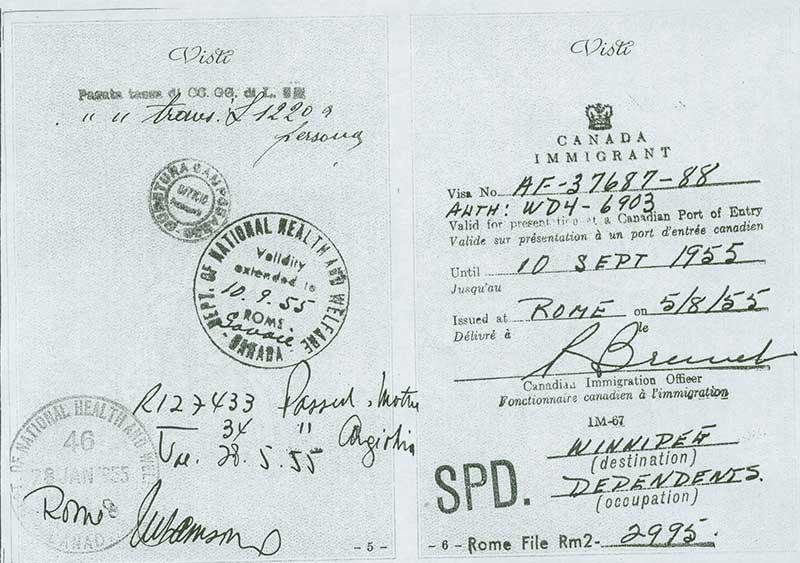 Visti
Pagata tassa di CC. GG. di L.
" " trans. £ 1220 a
persona
QUESTURA CAMPOBASSO
DEPT. OF NATIONAL HEALTH AND WELFARE
Validity
extended to
10.9.55
ROME.
Savoie
CANADA
R127433 Passed, Mother
34 "
28.5.55
OF NATIONAL HEALTH AND WEL
46
28 JAN 1955
CANAD
Rome
- 5 -
Visti
CANADA
IMMIGRANT
Visa No. AF-37687-88
AUTH: WD4-6903
Valid for presentation at a Canadian Port of Entry
Valide sur présentation à un port d'entrée canadien
Until 10 SEPT 1955
Jusqu'au
Issued at ROME on 5/8/55
Délivré à le
Canadian Immigration Officer
Fonctionnaire canadien à l'immigration
1M-67
WINNIPEG
(destination)
SPD. DEPENDENTS.
(occupation)
- 6 - Rome File Rm2- 2995.